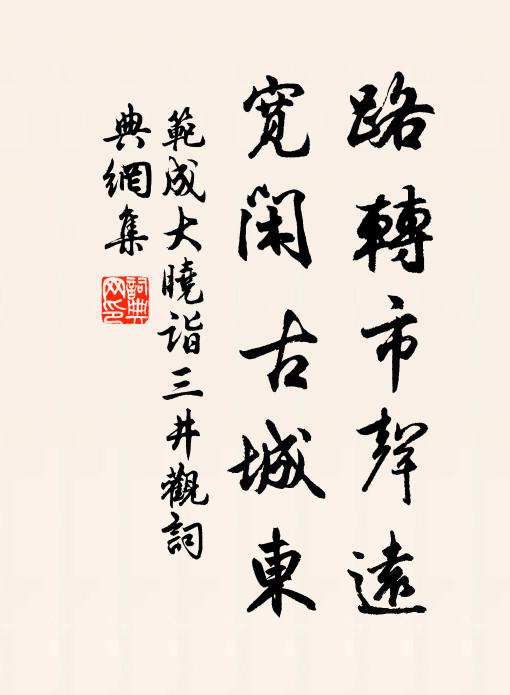 路轉市聲遠
寬閑古城東
範成大曉詣三井觀詞
典網集
詞典
网印